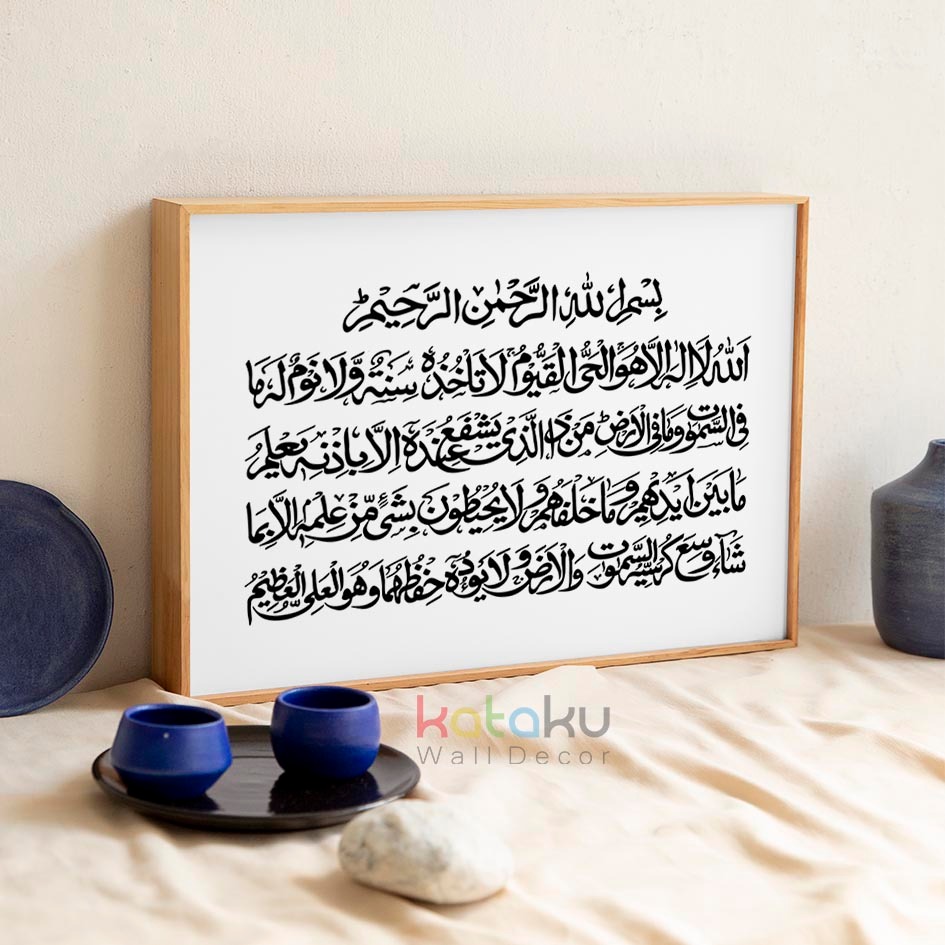 بِسْمِ اللهِ الرَّحْمٰنِ الرَّحِيْمِ
اَللهُ لَا اِلٰهَ اِلَّا هُوَ الْحَىُّ الْقَيُّوْمُ لَا تَاْخُذُهٗ سِنَةٌ وَّلَا نَوْمٌ لَهٗ مَا
فِى السَّمٰوٰتِ وَمَا فِى الْاَرْضِ مَنْ ذَا الَّذِىْ يَشْفَعُ عِنْدَهٗ اِلَّا بِاِذْنِهٖ يَعْلَمُ
مَا بَيْنَ اَيْدِيْهِمْ وَمَا خَلْفَهُمْ وَلَا يُحِيْطُوْنَ بِشَىْءٍ مِّنْ عِلْمِهٖ اِلَّا بِمَا
شَآءَ وَسِعَ كُرْسِيُّهُ السَّمٰوٰتِ وَالْاَرْضَ وَلَا يَئُوْدُهٗ حِفْظُهُمَا وَهُوَ الْعَلِىُّ الْعَظِيْمُ
kataku
Wall Decor